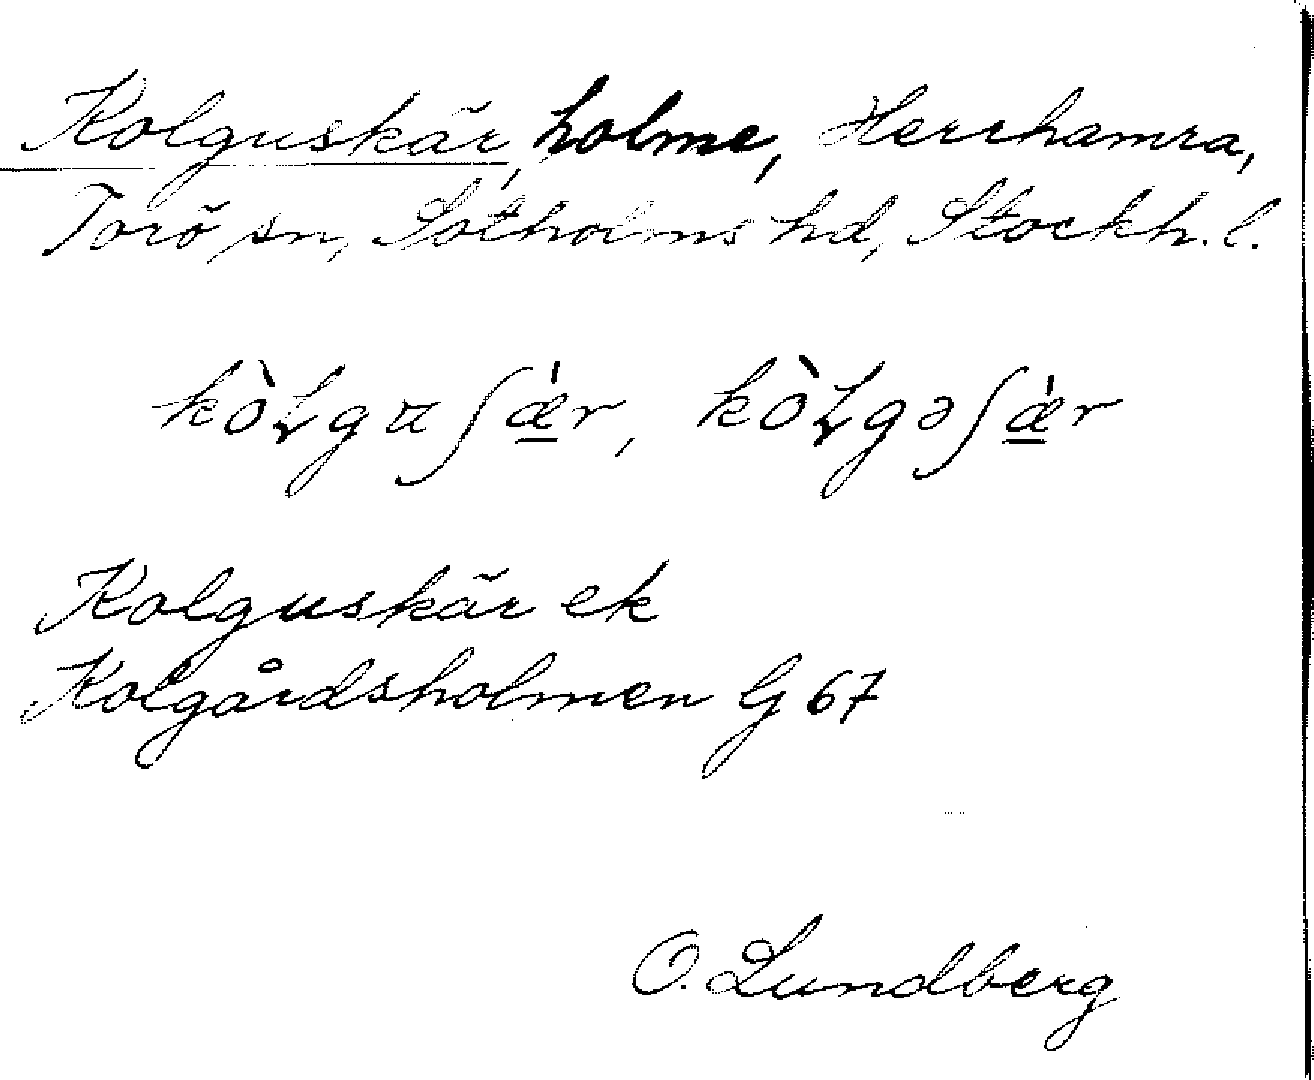 Kolguskär, holme, Herrhamra,
Torö sn, Sotholms hd, Stockh. l.
Kolguskär ek
Kolgårdsholmen G 67
O. Lundberg